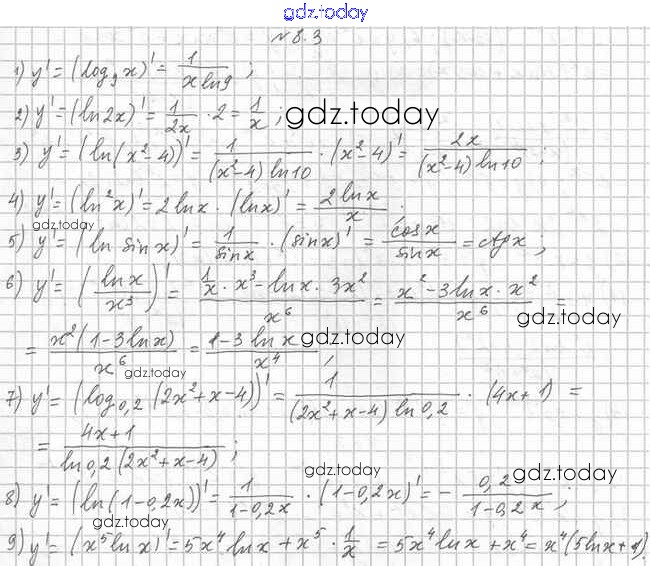 gdz.today
№8.3
1) y' = (log₉x)' = 1/(x ln9);
2) y' = (ln2x)' = 1/(2x) · 2 = 1/x; gdz.today
3) y' = (ln(x²-4))' = 1/((x²-4) ln10) · (x²-4)' = 2x/((x²-4) ln10);
4) y' = (ln²x)' = 2lnx · (lnx)' = (2lnx)/x.
gdz.today
5) y' = (ln sinx)' = 1/sinx · (sinx)' = cosx/sinx = ctgx;
6) y' = (lnx/x³)' = (1/x · x³ - lnx · 3x²)/x⁶ = (x² - 3lnx · x²)/x⁶ =
gdz.today
= x²(1-3lnx)/x⁶ = (1-3lnx)/x⁴; gdz.today
gdz.today
7) y' = (log₀,₂(2x²+x-4))' = 1/((2x²+x-4) ln0,2) · (4x+1) =
= (4x+1)/(ln0,2(2x²+x-4));
gdz.today gdz.today
8) y' = (ln(1-0,2x))' = 1/(1-0,2x) · (1-0,2x)' = - 0,2/(1-0,2x);
gdz.today gdz.today
9) y' = (x⁵lnx)' = 5x⁴lnx + x⁵ · 1/x = 5x⁴lnx + x⁴ = x⁴(5lnx+1).